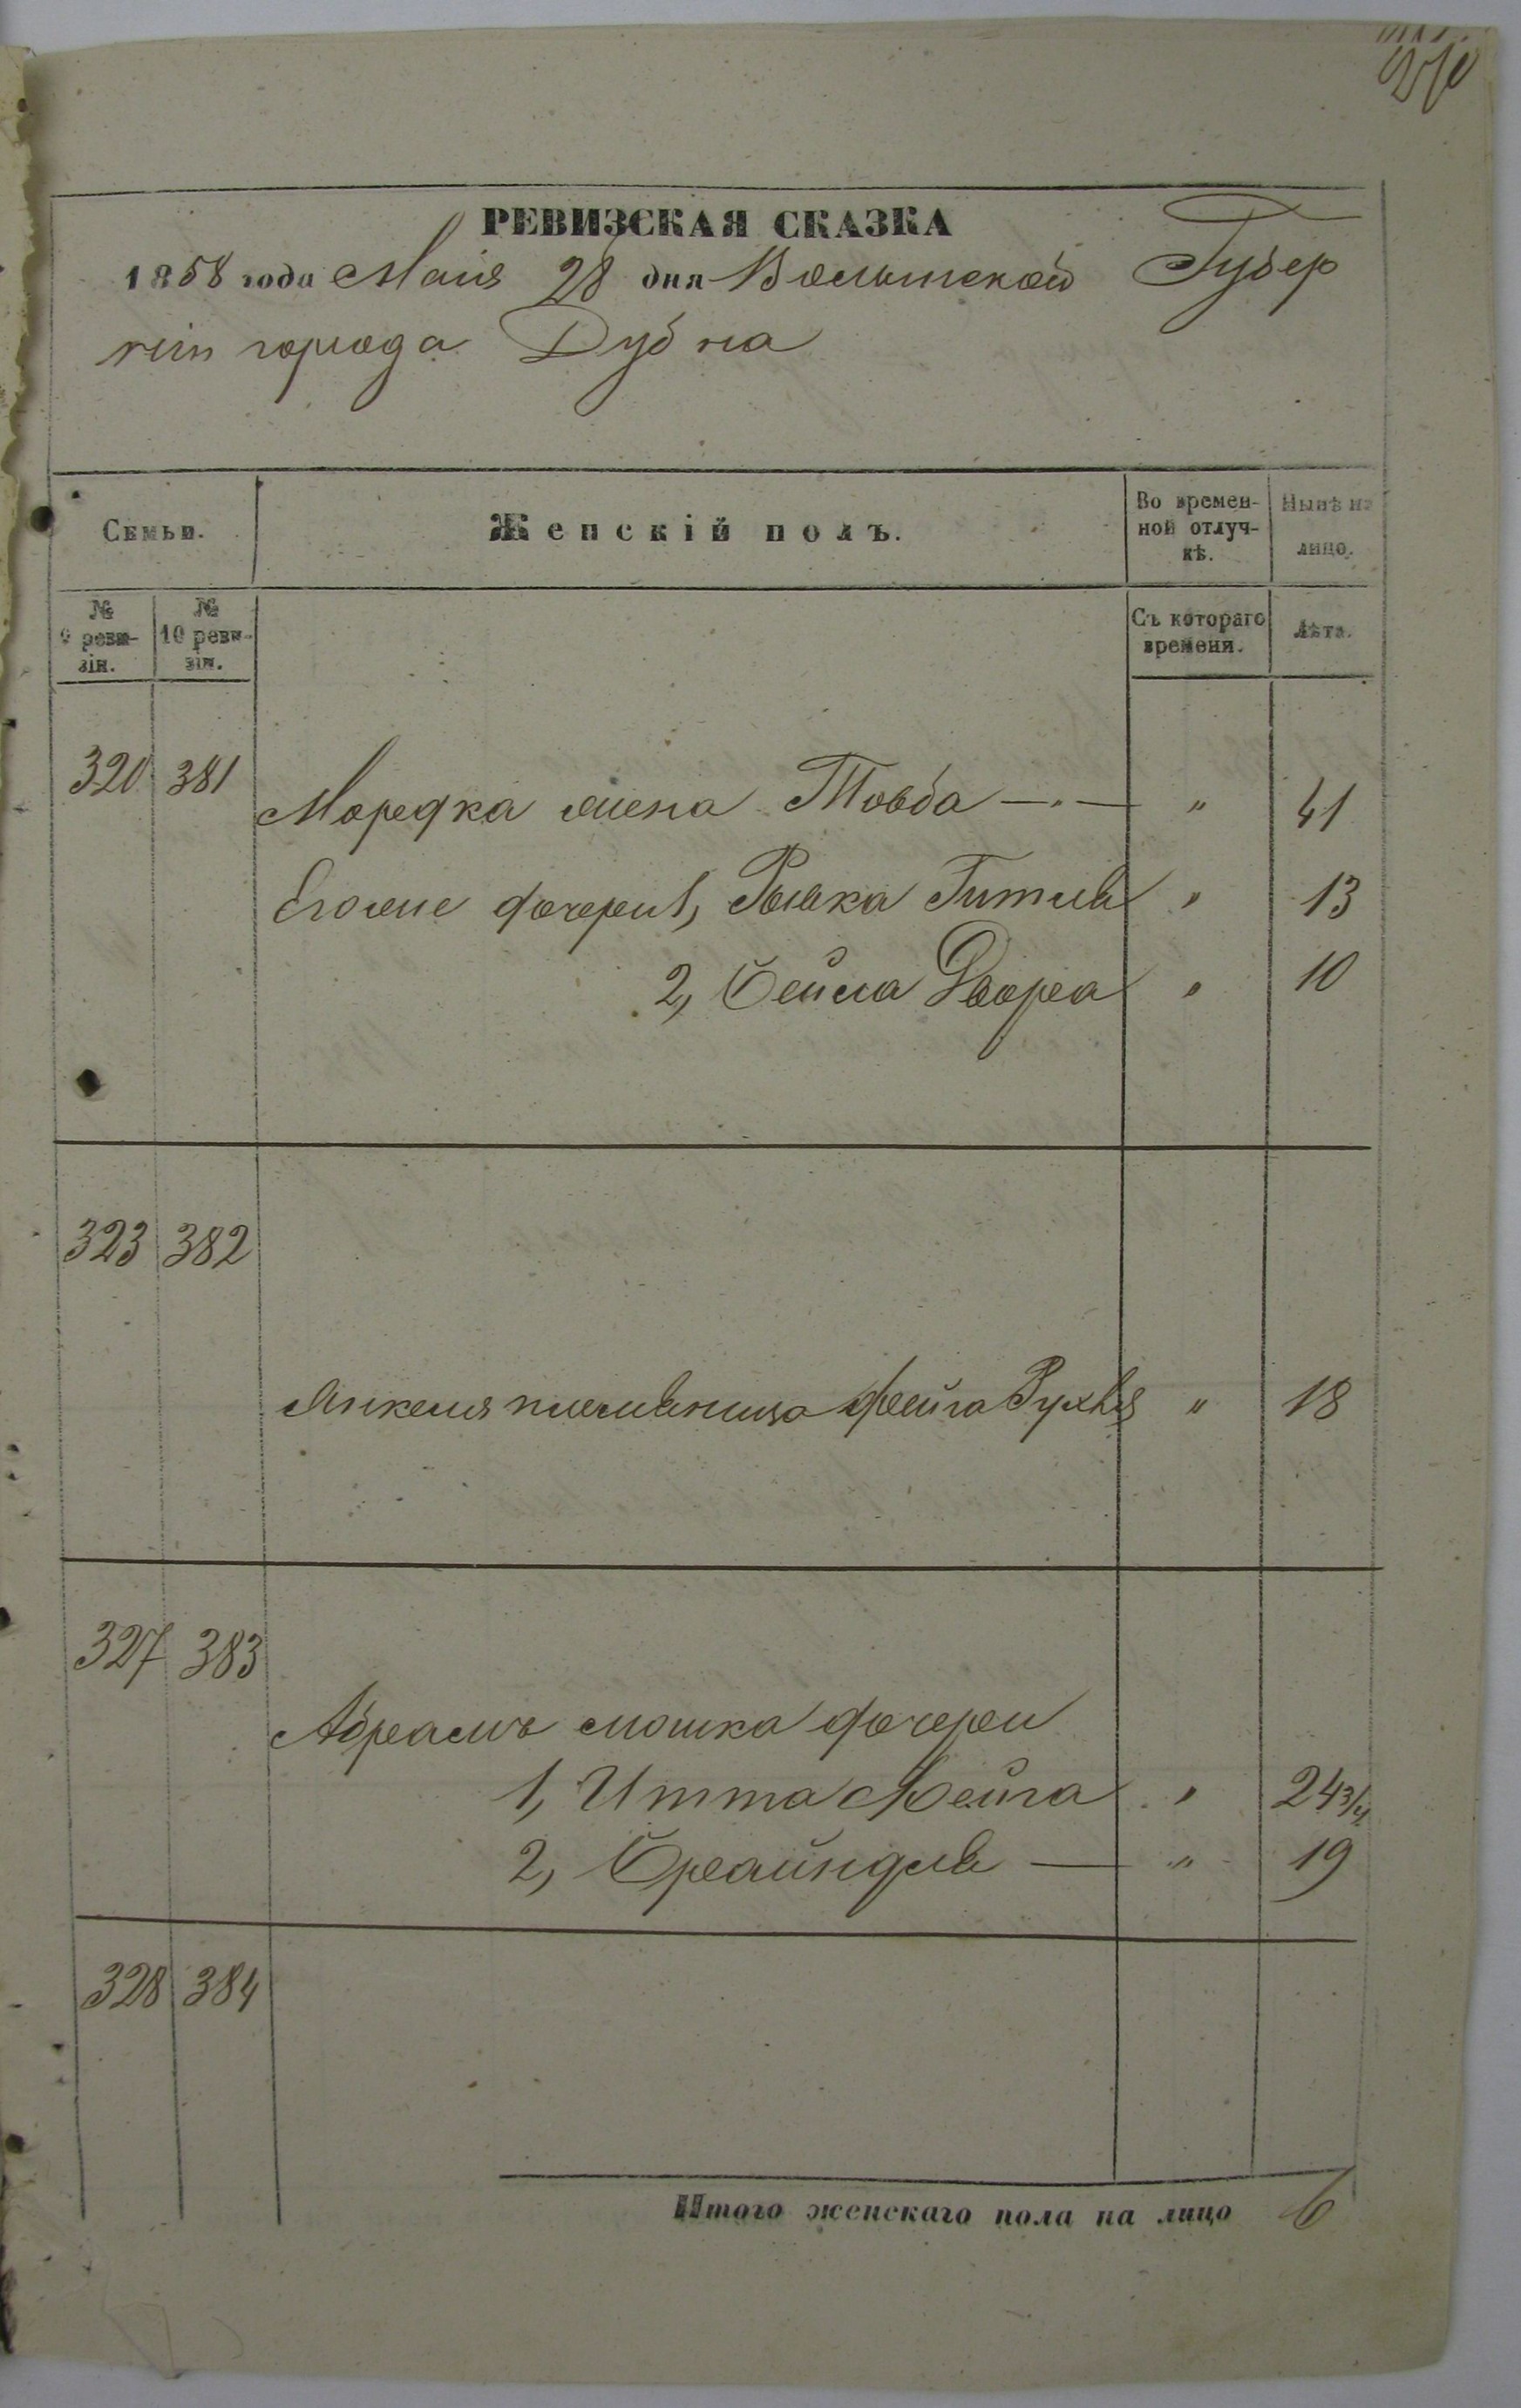 210
РЕВИЗСКАЯ СКАЗКА
1858 года Маія 28 дня Волынской Губер
ніи города Дубна
Семьи.
Женскій полъ.
Во времен-
ной отлуч-
кѣ.
Нынѣ на
лицо.
№
9 реви-
зіи.
№
10 реви-
зіи.
Съ котораго
времени.
Лѣта.
320 381
Мордка жена Товба —„— „ 41
Егоже дочери 1, Рывка Гитля „ 13
2, Бейла Двора „ 10
323 382
Янкеля племяница Фейга Рухля „ 18
327 383
Абрамъ Мошка дочери
1, Итта Фейга „ 24 3/4
2, Брайндля — „ 19
328 384
Итого женскаго пола на лицо 6